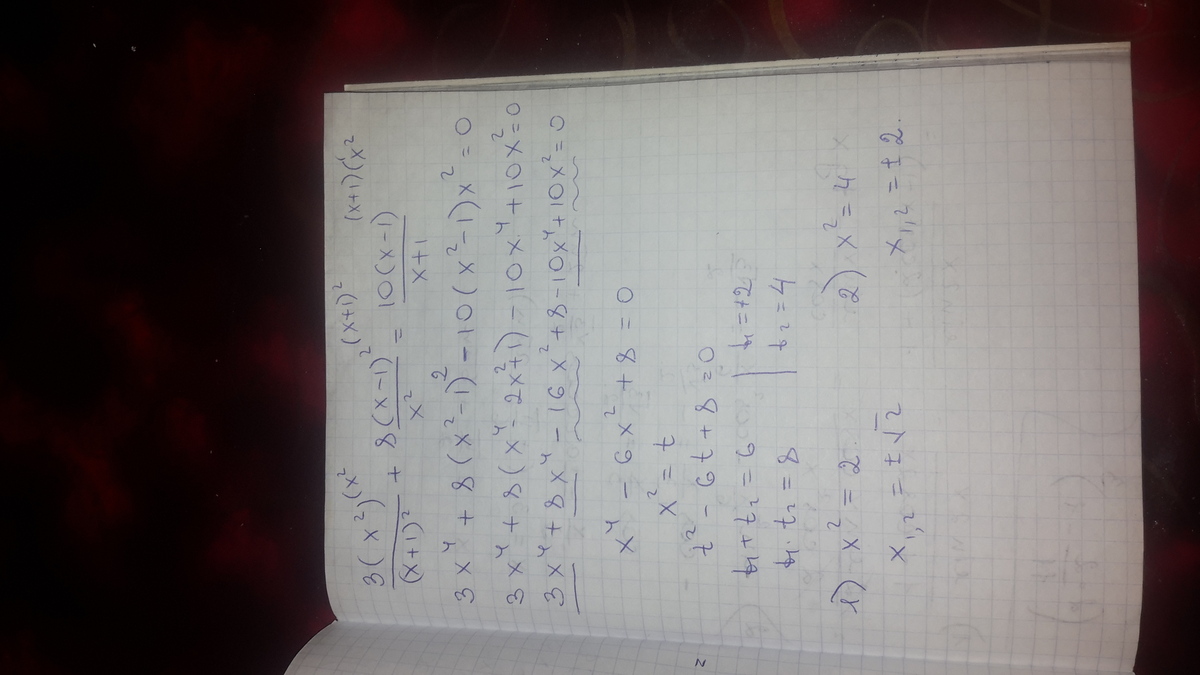 3(x²)⁽ˣ² / (x+1)² + 8(x-1)² ⁽ˣ⁺¹⁾² / x² = 10(x-1) ⁽ˣ⁺¹⁾⁽ˣ² / x+1
3x⁴ + 8(x²-1)² - 10(x²-1)x² = 0
3x⁴ + 8(x⁴ - 2x²+1) - 10x⁴ + 10x² = 0
3x⁴ + 8x⁴ - 16x² + 8 - 10x⁴ + 10x² = 0
x⁴ - 6x² + 8 = 0
x² = t
t² - 6t + 8 = 0
t₁ + t₂ = 6 | t₁ = +2
t₁ · t₂ = 8 | t₂ = 4
1) x² = 2 2) x² = 4
x₁,₂ = ±√2 x₁,₂ = ± 2.